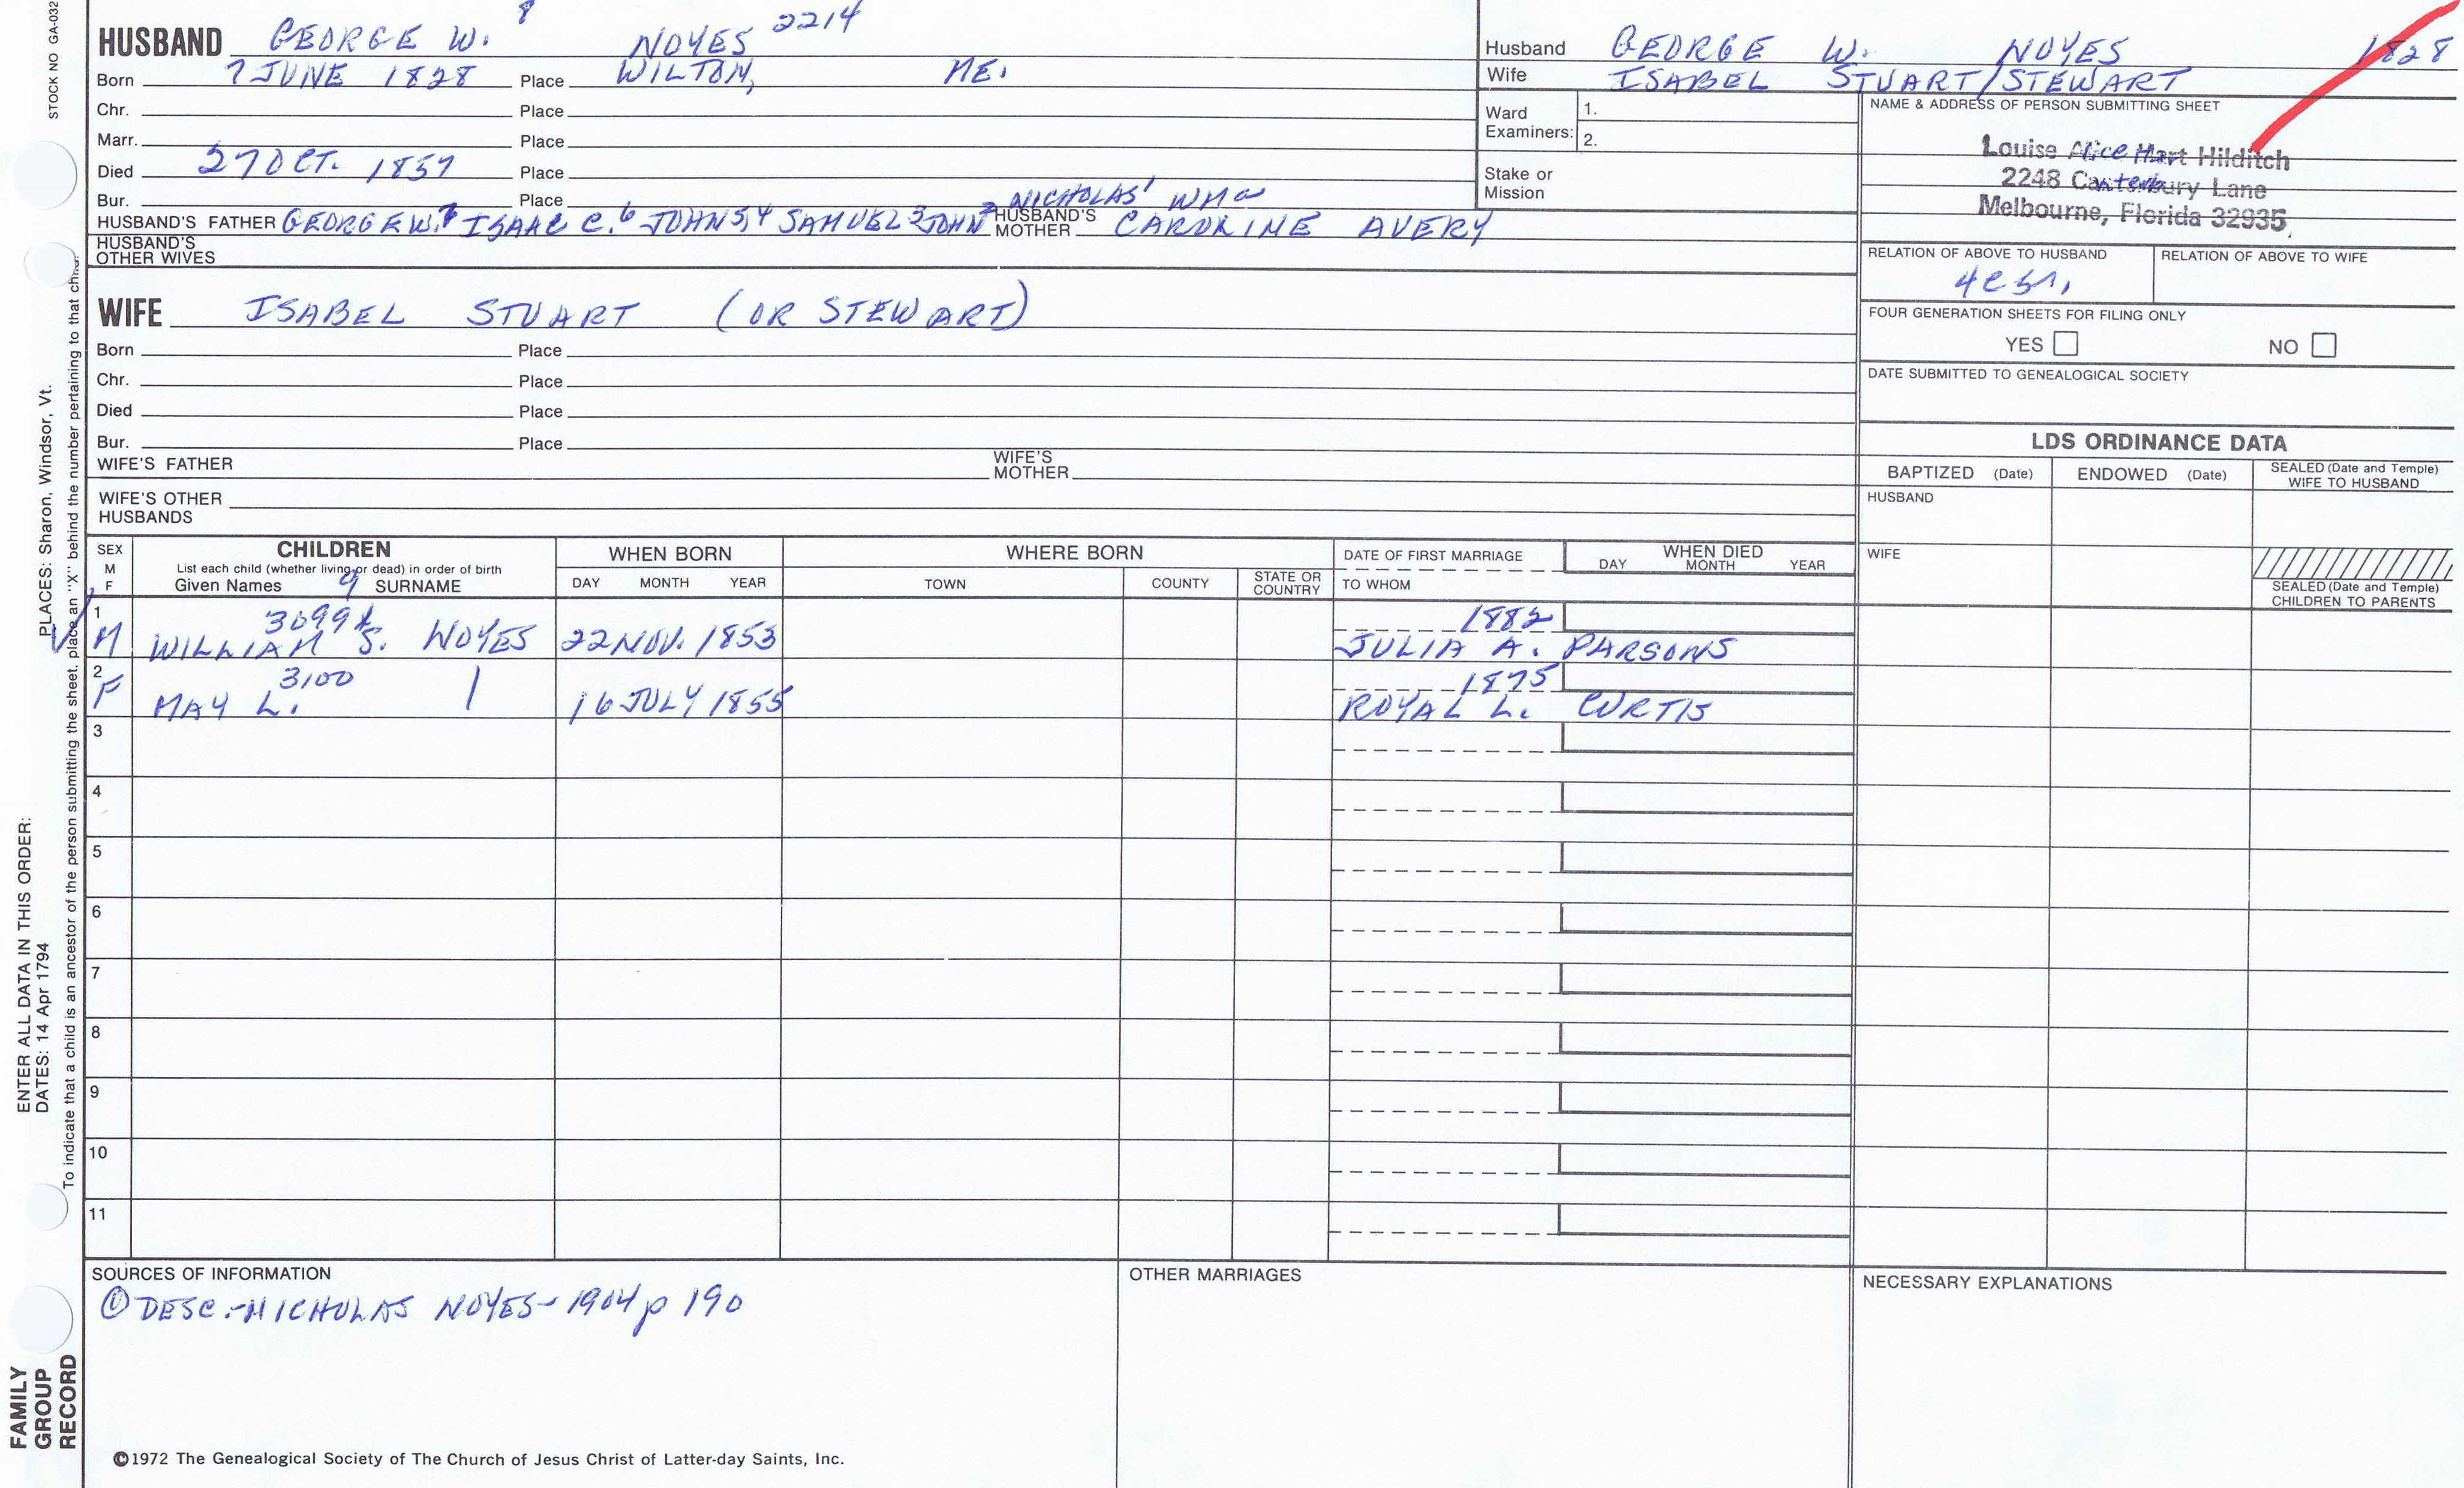 STOCK NO GA-032
PLACES: Sharon, Windsor, Vt.
ENTER ALL DATA IN THIS ORDER:
DATES: 14 Apr 1794
To indicate that a child is an ancestor of the person submitting the sheet, place an "X" behind the number pertaining to that child.
FAMILY
GROUP
RECORD
HUSBAND GEORGE W. 8 NOYES 2214
Born 7 JUNE 1828 Place WILTON, ME.
Chr. Place
Marr. Place
Died 27 OCT. 1857 Place
Bur. Place NICHOLAS' WM
HUSBAND'S FATHER GEORGE W.7 ISAAC C.6 JOHN5,4 SAMUEL3 JOHN2 HUSBAND'S MOTHER CAROLINE AVERY
HUSBAND'S OTHER WIVES
WIFE ISABEL STUART (OR STEWART)
Born Place
Chr. Place
Died Place
Bur. Place
WIFE'S FATHER WIFE'S MOTHER
WIFE'S OTHER HUSBANDS
Husband GEORGE W. NOYES 1828
Wife ISABEL STUART/STEWART
Ward Examiners: 1.
2.
Stake or Mission
NAME & ADDRESS OF PERSON SUBMITTING SHEET
Louise Alice Hart Hilditch
2248 Canterbury Lane
Melbourne, Florida 32935
RELATION OF ABOVE TO HUSBAND RELATION OF ABOVE TO WIFE
FOUR GENERATION SHEETS FOR FILING ONLY
YES NO
DATE SUBMITTED TO GENEALOGICAL SOCIETY
LDS ORDINANCE DATA
BAPTIZED (Date) ENDOWED (Date) SEALED (Date and Temple) WIFE TO HUSBAND
HUSBAND
WIFE
SEALED (Date and Temple) CHILDREN TO PARENTS
SEX M F
CHILDREN
List each child (whether living or dead) in order of birth
Given Names 9 SURNAME
WHEN BORN
DAY MONTH YEAR
WHERE BORN
TOWN COUNTY STATE OR COUNTRY
DATE OF FIRST MARRIAGE
TO WHOM
WHEN DIED
DAY MONTH YEAR
1 3099 1882
M WILLIAM S. NOYES 22 NOV. 1853 JULIA A. PARSONS
2 3100 1875
F MAY L. 16 JULY 1855 ROYAL L. CURTIS
3
4
5
6
7
8
9
10
11
SOURCES OF INFORMATION
① DESC.-NICHOLAS NOYES-1904 p 190
OTHER MARRIAGES
NECESSARY EXPLANATIONS
©1972 The Genealogical Society of The Church of Jesus Christ of Latter-day Saints, Inc.